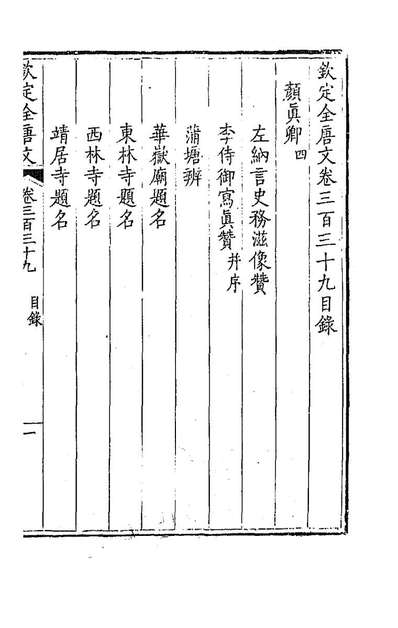 欽定全唐文卷三百三十九目錄
顏眞卿四
左納言史務滋像贊
李侍御寫眞贊并序
蒲塘辨
華嶽廟題名
東林寺題名
西林寺題名
靖居寺題名
欽定全唐文
卷三百三十九
目錄
一